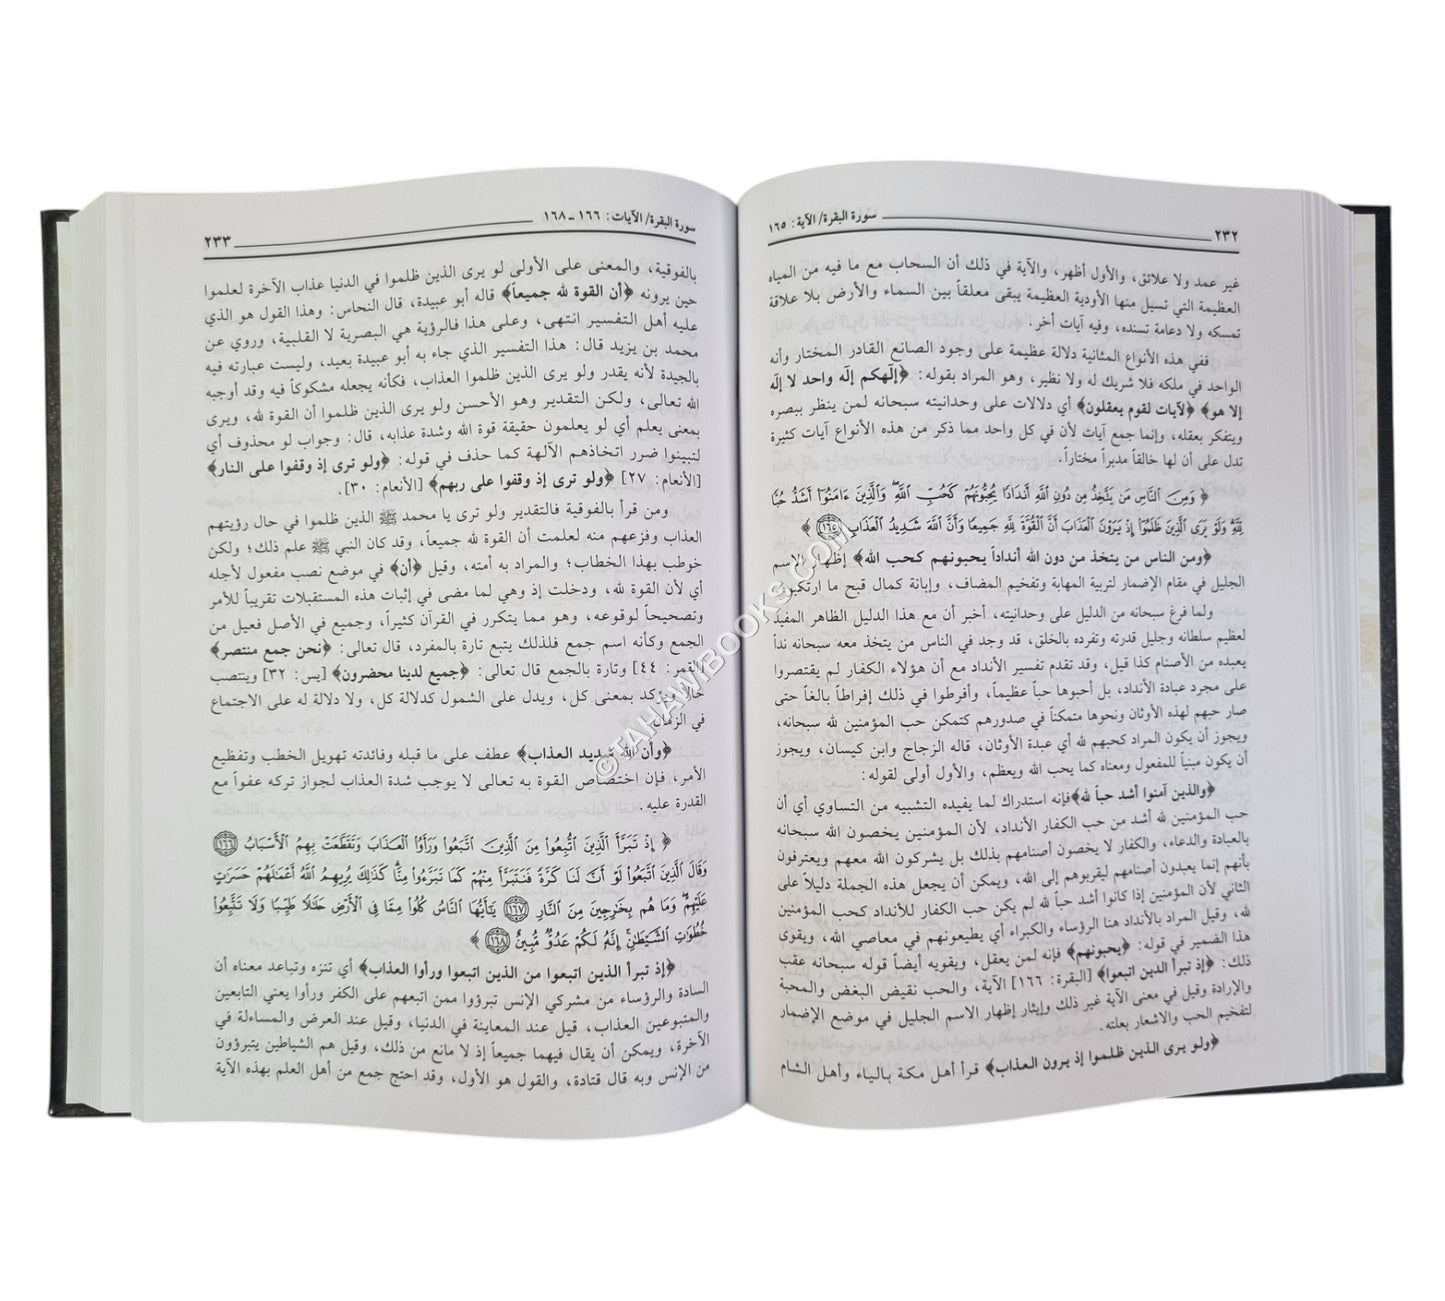 ٢٣٢ سورة البقرة/ الآية: ١٦٥
غير عمد ولا علائق، والأول أظهر، والآية في ذلك أن السحاب مع ما فيه من المياه
العظيمة التي تسيل منها الأودية العظيمة يبقى معلقاً بين السماء والأرض بلا علاقة
تمسكه ولا دعامة تسنده، وفيه آيات أخر.
ففي هذه الأنواع المثانية دلالة عظيمة على وجود الصانع القادر المختار وأنه
الواحد في ملكه فلا شريك له ولا نظير، وهو المراد بقوله: ﴿إلهكم إله واحد لا إله
إلا هو﴾ ﴿لآيات لقوم يعقلون﴾ أي دلالات على وحدانيته سبحانه لمن ينظر ببصره
ويتفكر بعقله، وإنما جمع آيات لأن في كل واحد مما ذكر من هذه الأنواع آيات كثيرة
تدل على أن لها خالقاً مدبراً مختاراً.
﴿ وَمِنَ ٱلنَّاسِ مَن يَتَّخِذُ مِن دُونِ ٱللَّهِ أَندَادًا يُحِبُّونَهُمْ كَحُبِّ ٱللَّهِ وَٱلَّذِينَ ءَامَنُوٓا۟ أَشَدُّ حُبًّا
لِلَّهِ وَلَوْ يَرَى ٱلَّذِينَ ظَلَمُوٓا۟ إِذْ يَرَوْنَ ٱلْعَذَابَ أَنَّ ٱلْقُوَّةَ لِلَّهِ جَمِيعًا وَأَنَّ ٱللَّهَ شَدِيدُ ٱلْعَذَابِ ١٦٥ ﴾
﴿ومن الناس من يتخذ من دون الله أنداداً يحبونهم كحب الله﴾ إظهار الاسم
الجليل في مقام الإضمار لتربية المهابة وتفخيم المضاف، وإبانة كمال قبح ما ارتكبوه.
ولما فرغ سبحانه من الدليل على وحدانيته، أخبر أن مع هذا الدليل الظاهر المفيد
لعظيم سلطانه وجليل قدرته وتفرده بالخلق، قد وجد في الناس من يتخذ معه سبحانه نداً
يعبده من الأصنام كذا قيل، وقد تقدم تفسير الأنداد مع أن هؤلاء الكفار لم يقتصروا
على مجرد عبادة الأنداد، بل أحبوها حباً عظيماً، وأفرطوا في ذلك إفراطاً بالغاً حتى
صار حبهم لهذه الأوثان ونحوها متمكناً في صدورهم كتمكن حب المؤمنين لله سبحانه،
ويجوز أن يكون المراد كحبهم لله أي عبدة الأوثان، قاله الزجاج وابن كيسان، ويجوز
أن يكون مبنياً للمفعول ومعناه كما يحب الله ويعظم، والأول أولى لقوله:
﴿والذين آمنوا أشد حباً لله﴾فإنه استدراك لما يفيده التشبيه من التساوي أي أن
حب المؤمنين لله أشد من حب الكفار الأنداد، لأن المؤمنين يخصون الله سبحانه
بالعبادة والدعاء، والكفار لا يخصون أصنامهم بذلك بل يشركون الله معهم ويعترفون
بأنهم إنما يعبدون أصنامهم ليقربوهم إلى الله، ويمكن أن يجعل هذه الجملة دليلاً على
الثاني لأن المؤمنين إذا كانوا أشد حباً لله لم يكن حب الكفار للأنداد كحب المؤمنين
لله، وقيل المراد بالأنداد هنا الرؤساء والكبراء أي يطيعونهم في معاصي الله، ويقوى
هذا الضمير في قوله: ﴿يحبونهم﴾ فإنه لمن يعقل، ويقويه أيضاً قوله سبحانه عقب
ذلك: ﴿إذ تبرأ الذين اتبعوا﴾ [البقرة: ١٦٦] الآية، والحب نقيض البغض والمحبة
والإرادة وقيل في معنى الآية غير ذلك وإيثار إظهار الاسم الجليل في موضع الإضمار
لتفخيم الحب والاشعار بعلته.
﴿ولو يرى الذين ظلموا إذ يرون العذاب﴾ قرأ أهل مكة بالياء وأهل الشام
سورة البقرة/ الآيات: ١٦٦ ـ ١٦٨ ٢٣٣
بالفوقية، والمعنى على الأولى لو يرى الذين ظلموا في الدنيا عذاب الآخرة لعلموا
حين يرونه ﴿أن القوة لله جميعاً﴾ قاله أبو عبيدة، قال النحاس: وهذا القول هو الذي
عليه أهل التفسير انتهى، وعلى هذا فالرؤية هي البصرية لا القلبية، وروي عن
محمد بن يزيد قال: هذا التفسير الذي جاء به أبو عبيدة بعيد، وليست عبارته فيه
بالجيدة لأنه يقدر ولو يرى الذين ظلموا العذاب، فكأنه يجعله مشكوكاً فيه وقد أوجبه
الله تعالى، ولكن التقدير وهو الأحسن ولو يرى الذين ظلموا أن القوة لله، ويرى
بمعنى يعلم أي لو يعلمون حقيقة قوة الله وشدة عذابه، قال: وجواب لو محذوف أي
لتبينوا ضرر اتخاذهم الآلهة كما حذف في قوله: ﴿ولو ترى إذ وقفوا على النار﴾
[الأنعام: ٢٧] ﴿ولو ترى إذ وقفوا على ربهم﴾ [الأنعام: ٣٠].
ومن قرأ بالفوقية فالتقدير ولو ترى يا محمد ﷺ الذين ظلموا في حال رؤيتهم
العذاب وفزعهم منه لعلمت أن القوة لله جميعاً، وقد كان النبي ﷺ علم ذلك؛ ولكن
خوطب بهذا الخطاب؛ والمراد به أمته، وقيل ﴿أن﴾ في موضع نصب مفعول لأجله
أي لأن القوة لله، ودخلت إذ وهي لما مضى في إثبات هذه المستقبلات تقريباً للأمر
وتصحيحاً لوقوعه، وهو مما يتكرر في القرآن كثيراً، وجميع في الأصل فعيل من
الجمع وكأنه اسم جمع فلذلك يتبع تارة بالمفرد، قال تعالى: ﴿نحن جمع منتصر﴾
[القمر: ٤٤] وتارة بالجمع قال تعالى: ﴿جميع لدينا محضرون﴾ [يس: ٣٢] وينتصب
حالاً ويؤكد بمعنى كل، ويدل على الشمول كدلالة كل، ولا دلالة له على الاجتماع
في الزمان.
﴿وأن الله شديد العذاب﴾ عطف على ما قبله وفائدته تهويل الخطب وتفظيع
الأمر، فإن اختصاص القوة به تعالى لا يوجب شدة العذاب لجواز تركه عفواً مع
القدرة عليه.
﴿ إِذْ تَبَرَّأَ ٱلَّذِينَ ٱتُّبِعُوا۟ مِنَ ٱلَّذِينَ ٱتَّبَعُوا۟ وَرَأَوُا۟ ٱلْعَذَابَ وَتَقَطَّعَتْ بِهِمُ ٱلْأَسْبَابُ ١٦٦
وَقَالَ ٱلَّذِينَ ٱتَّبَعُوا۟ لَوْ أَنَّ لَنَا كَرَّةً فَنَتَبَرَّأَ مِنْهُمْ كَمَا تَبَرَّءُوا۟ مِنَّا كَذَٰلِكَ يُرِيهِمُ ٱللَّهُ أَعْمَٰلَهُمْ حَسَرَٰتٍ
عَلَيْهِمْ وَمَا هُم بِخَٰرِجِينَ مِنَ ٱلنَّارِ ١٦٧ يَٰٓأَيُّهَا ٱلنَّاسُ كُلُوا۟ مِمَّا فِى ٱلْأَرْضِ حَلَٰلًا طَيِّبًا وَلَا تَتَّبِعُوا۟
خُطُوَٰتِ ٱلشَّيْطَٰنِ إِنَّهُۥ لَكُمْ عَدُوٌّ مُّبِينٌ ١٦٨ ﴾
﴿إذ تبرأ الذين اتبعوا من الذين اتبعوا ورأوا العذاب﴾ أي تنزه وتباعد معناه أن
السادة والرؤساء من مشركي الإنس تبرؤوا ممن اتبعهم على الكفر ورأوا يعني التابعين
والمتبوعين العذاب، قيل عند المعاينة في الدنيا، وقيل عند العرض والمساءلة في
الآخرة، ويمكن أن يقال فيهما جميعاً إذ لا مانع من ذلك، وقيل هم الشياطين يتبرؤون
من الإنس وبه قال قتادة، والقول هو الأول، وقد احتج جمع من أهل العلم بهذه الآية
©TAHAWIBOOKS.COM